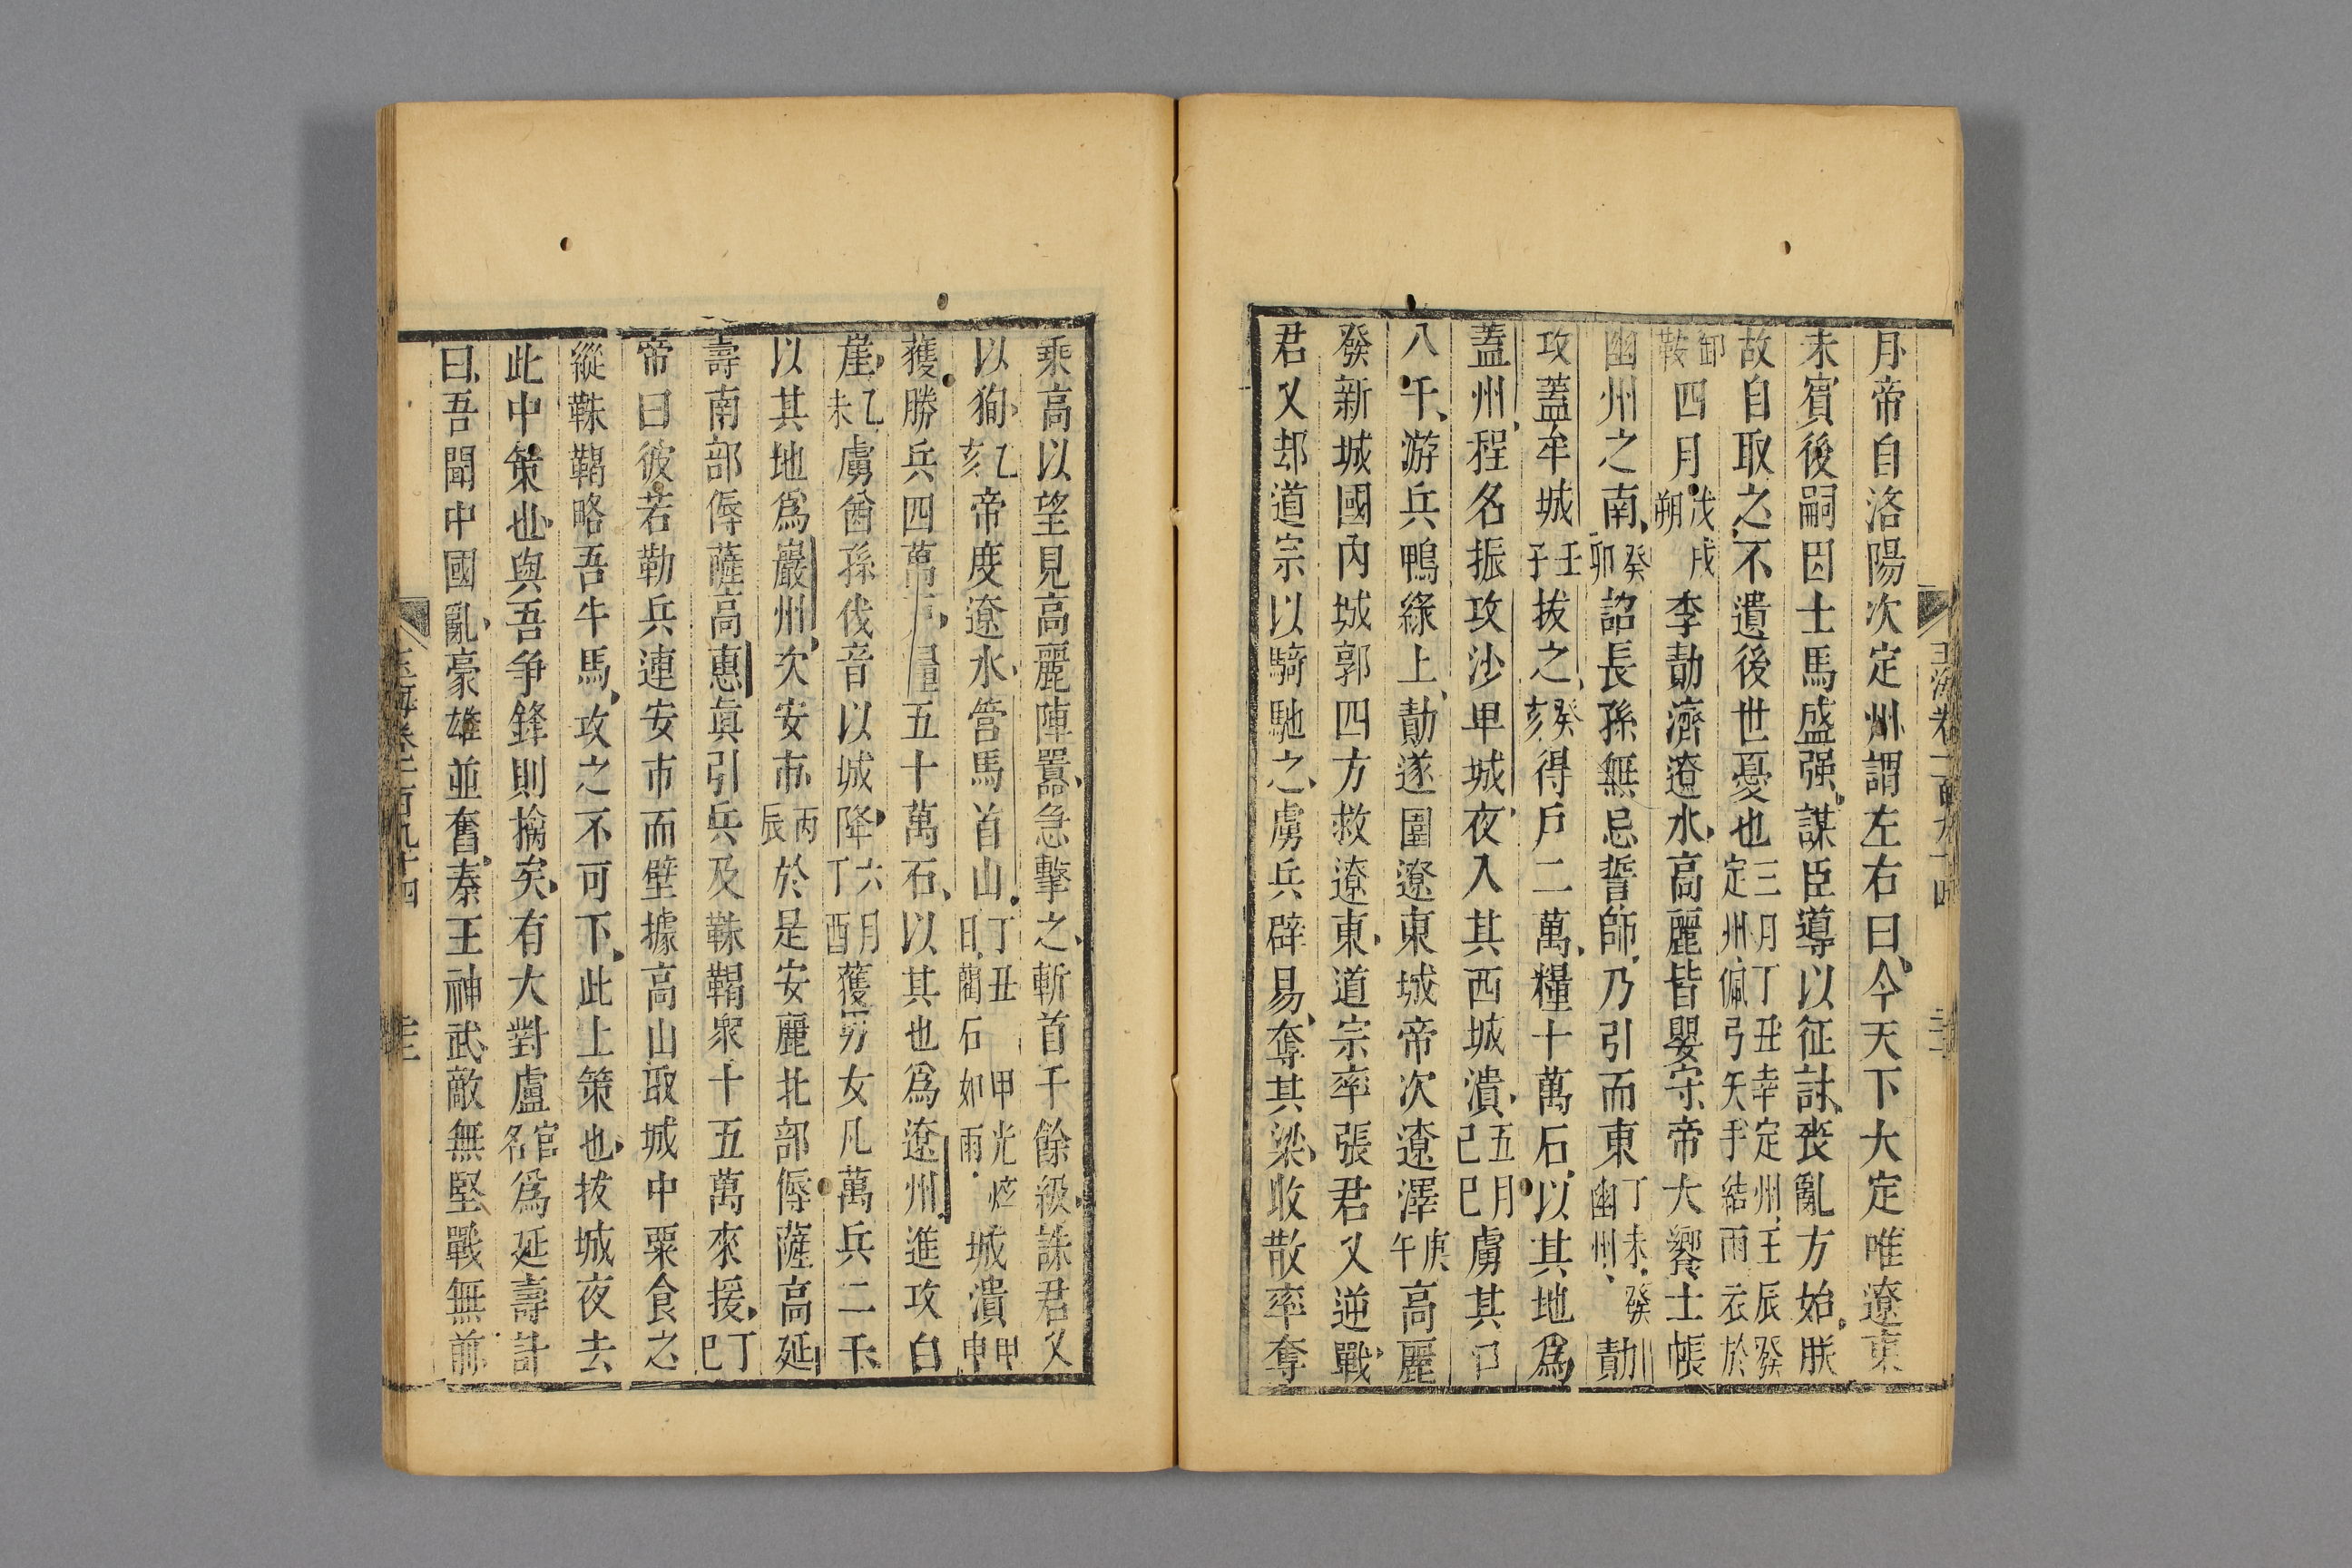 月帝自洛陽次定州謂左右曰今天下大定唯遼東
未賓後嗣因士馬盛强謀臣導以征討喪亂方始朕
故自取之不遺後世憂也三月丁丑幸定州壬辰癸定州佩弓矢手結雨衣於
鞍卸四月戊戌朔李勣濟遼水高麗皆嬰守帝大饗士帳
幽州之南癸卯詔長孫無忌誓師乃引而東丁未發幽州勣
攻蓋牟城壬子拔之癸亥得戶二萬糧十萬石以其地爲
蓋州程名振攻沙卑城夜入其西城潰五月己巳虜其口
八千游兵鴨綠上勣遂圍遼東城帝次遼澤庚午高麗
發新城國內城郭四方救遼東道宗率張君乂逆戰
君乂却道宗以騎馳之虜兵辟易奪其梁收散率奪
玉海卷一百九十四
乘高以望見高麗陣囂急擊之斬首千餘級誅君乂
以狥乙亥帝度遼水營馬首山丁丑甲光炫日藺石如雨城潰甲申
獲勝兵四萬戶糧五十萬石以其地爲遼州進攻白
崖乙未虜酋孫伐音以城降六月丁酉獲男女凡萬兵二千
以其地爲巖州次安市丙辰於是安麗北部傉薩高延
壽南部傉薩高惠眞引兵及靺鞨衆十五萬來援丁巳
帝曰彼若勒兵連安市而壁據高山取城中粟食之
縱靺鞨略吾牛馬攻之不可下此上策也拔城夜去
此中策也與吾爭鋒則擒矣有大對盧官名爲延壽計
曰吾聞中國亂豪雄並奮秦王神武敵無堅戰無前
玉海卷一百九十四